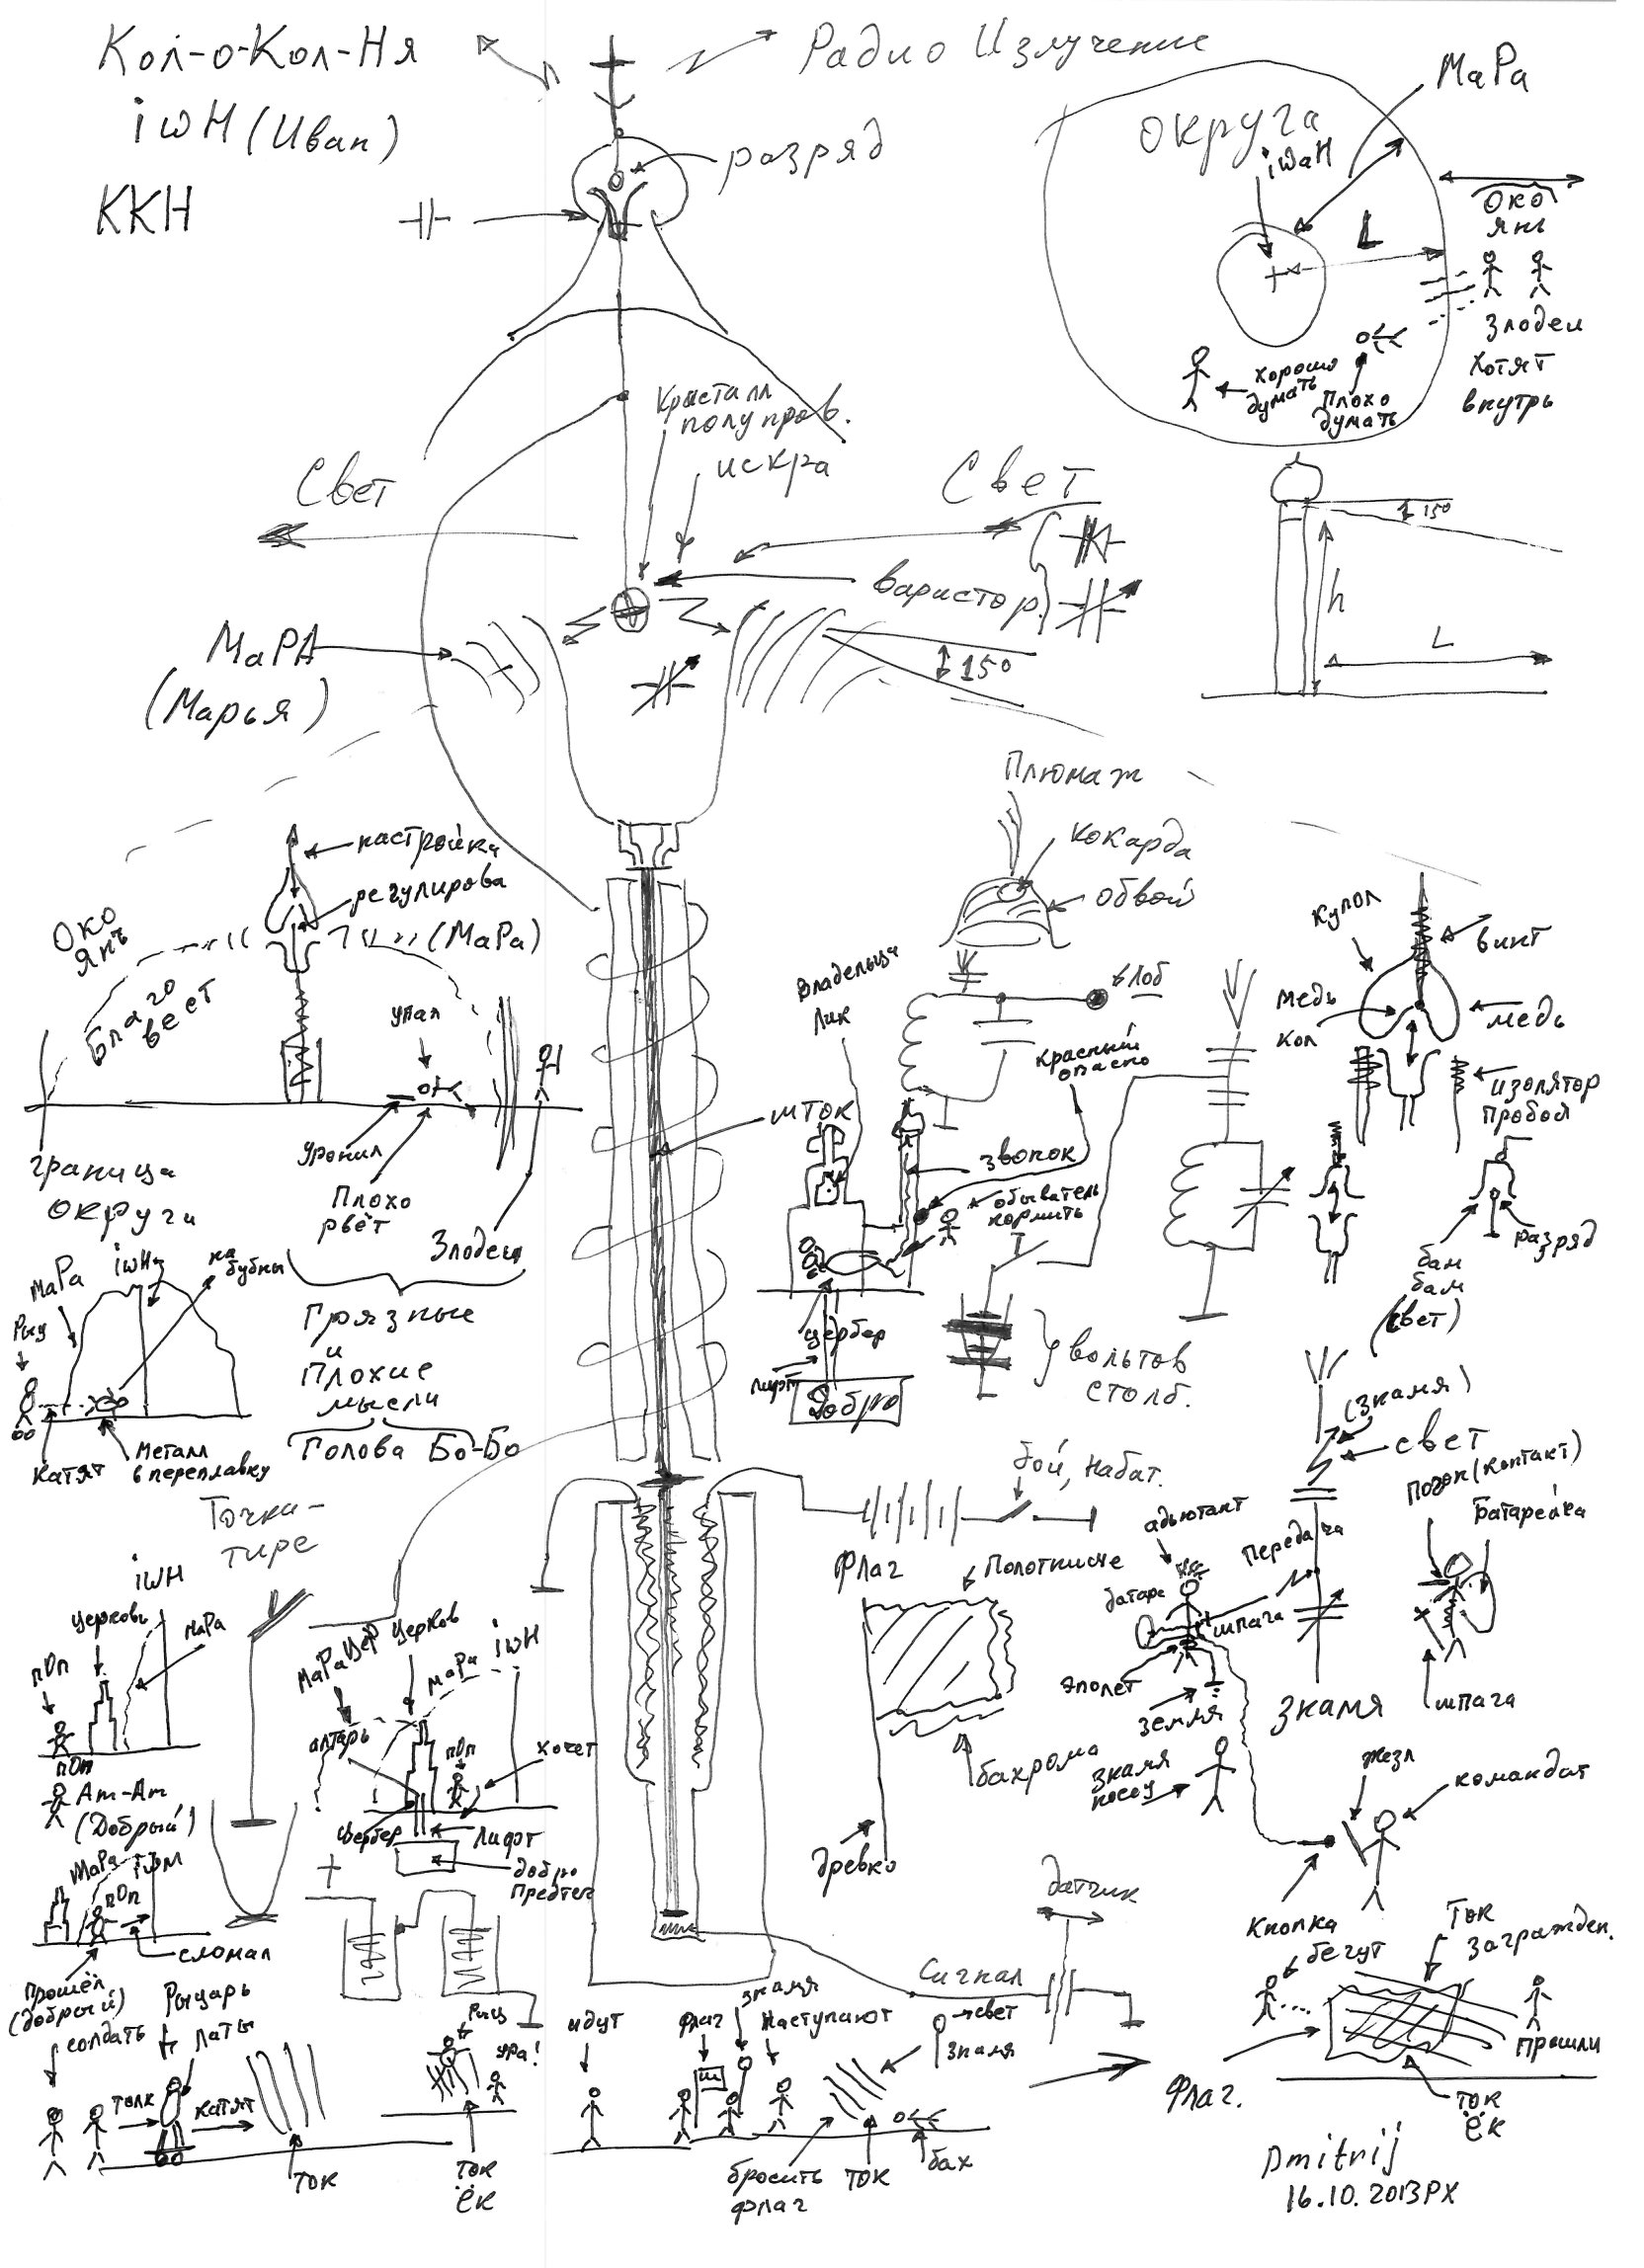 Кол-о-Кол-Ня
iwН (Иван)
ККН
Радио Излучение
разряд
МаРа
округа
iwaH
L
Око
янь
Злодеи
хотят
внутрь
хорошо
думать
Плохо
думать
Кристалл
полупров.
искра
Свет
Свет
варистор
150
h
L
МаРА
(Марья)
150
Плюмаж
кокарда
обвой
настройка
регулирова
(МаРа)
Око
Янь
Благо
веет
упал
уронил
Плохо
рвёт
Злодеи
граница
округи
Грязные
и
Плохие
мысли
Голова Бо-Бо
МаРа
iwH
на
бубны
Рыц
катят
Металл
в переплавку
шток
Владельца
Лик
Лоб
красный
опасно
звонок
обыватель
кормить
цербер
лифт
Добро
вольтов
столб.
купол
винт
медь
кол
медь
изолятор
пробой
бам
бам
(свет)
разряд
(Знамя)
свет
Точки-
тире
iwH
церковь
МаРа
пОп
пОп
Ат-Ат
(Добрый)
МаРа
пОп
сломал
Прошёл
(добрый)
МаРа
Цер
Церков
МаРа
iwH
алтарь
пОп
хочет
Цербер
Лифт
добро
Предтеч
+
бой, набат.
Флаг
Полотнище
бахрома
древко
адьютант
Передача
батаре
шпага
эполет
земля
знамя
несу
Знамя
(контакт)
Батарейка
шпага
жезл
командат
Кнопка
датчик
Сигнал
солдать
Рыцарь
Латы
толк
катят
ток
Рыц
ура!
ток
ёк
идут
флаг
знамя
Наступают
свет
Знамя
бросить
флаг
ток
бах
бегут
Ток
Загражден.
Прошли
Флаг.
ток
ёк
Dmitrij
16.10.2013РХ